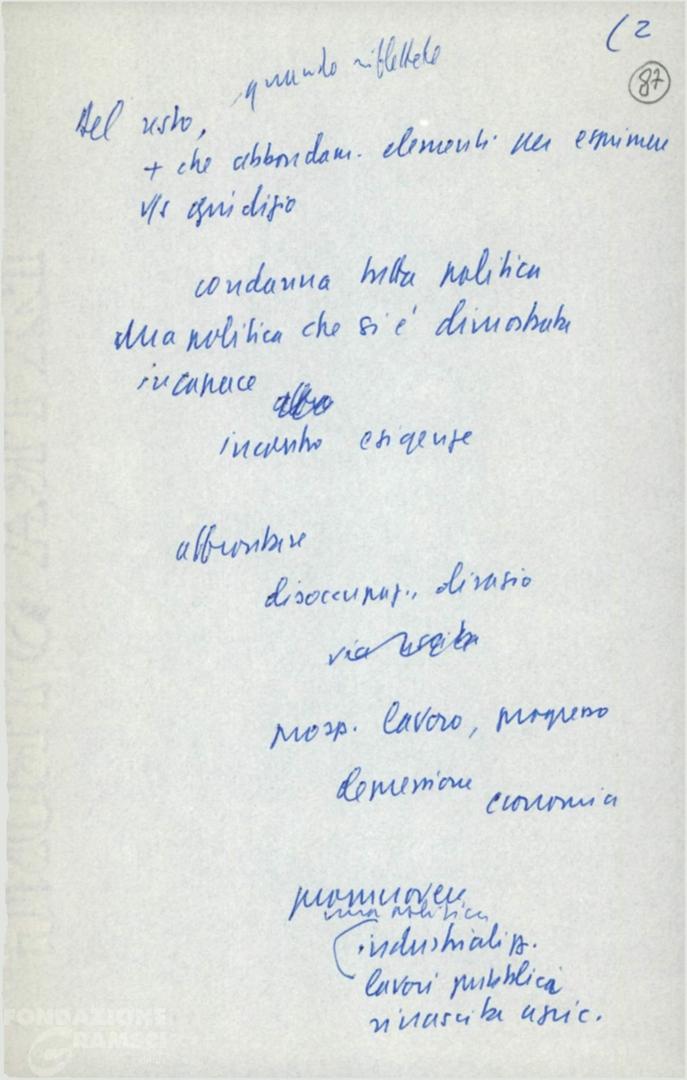 ( 2
87
quando riflettete
Del resto,
+ che abbondam. elementi per esprimere
v/s giudizio
condanna tutta politica
una politica che si è dimostrata
incapace
incontro esigenze
affrontare
disoccupaz., disagio
via uscita
prosp. lavoro, progresso
depressione economia
promuovere
una politica
industrializ.
lavori pubblici
rinascita agric.
FONDAZIONE
GRAMSCI